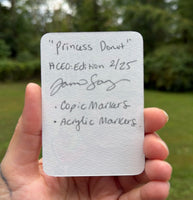 "Princess Donut"
ACEO: Edition 2/25
• Copic Markers
• Acrylic Markers